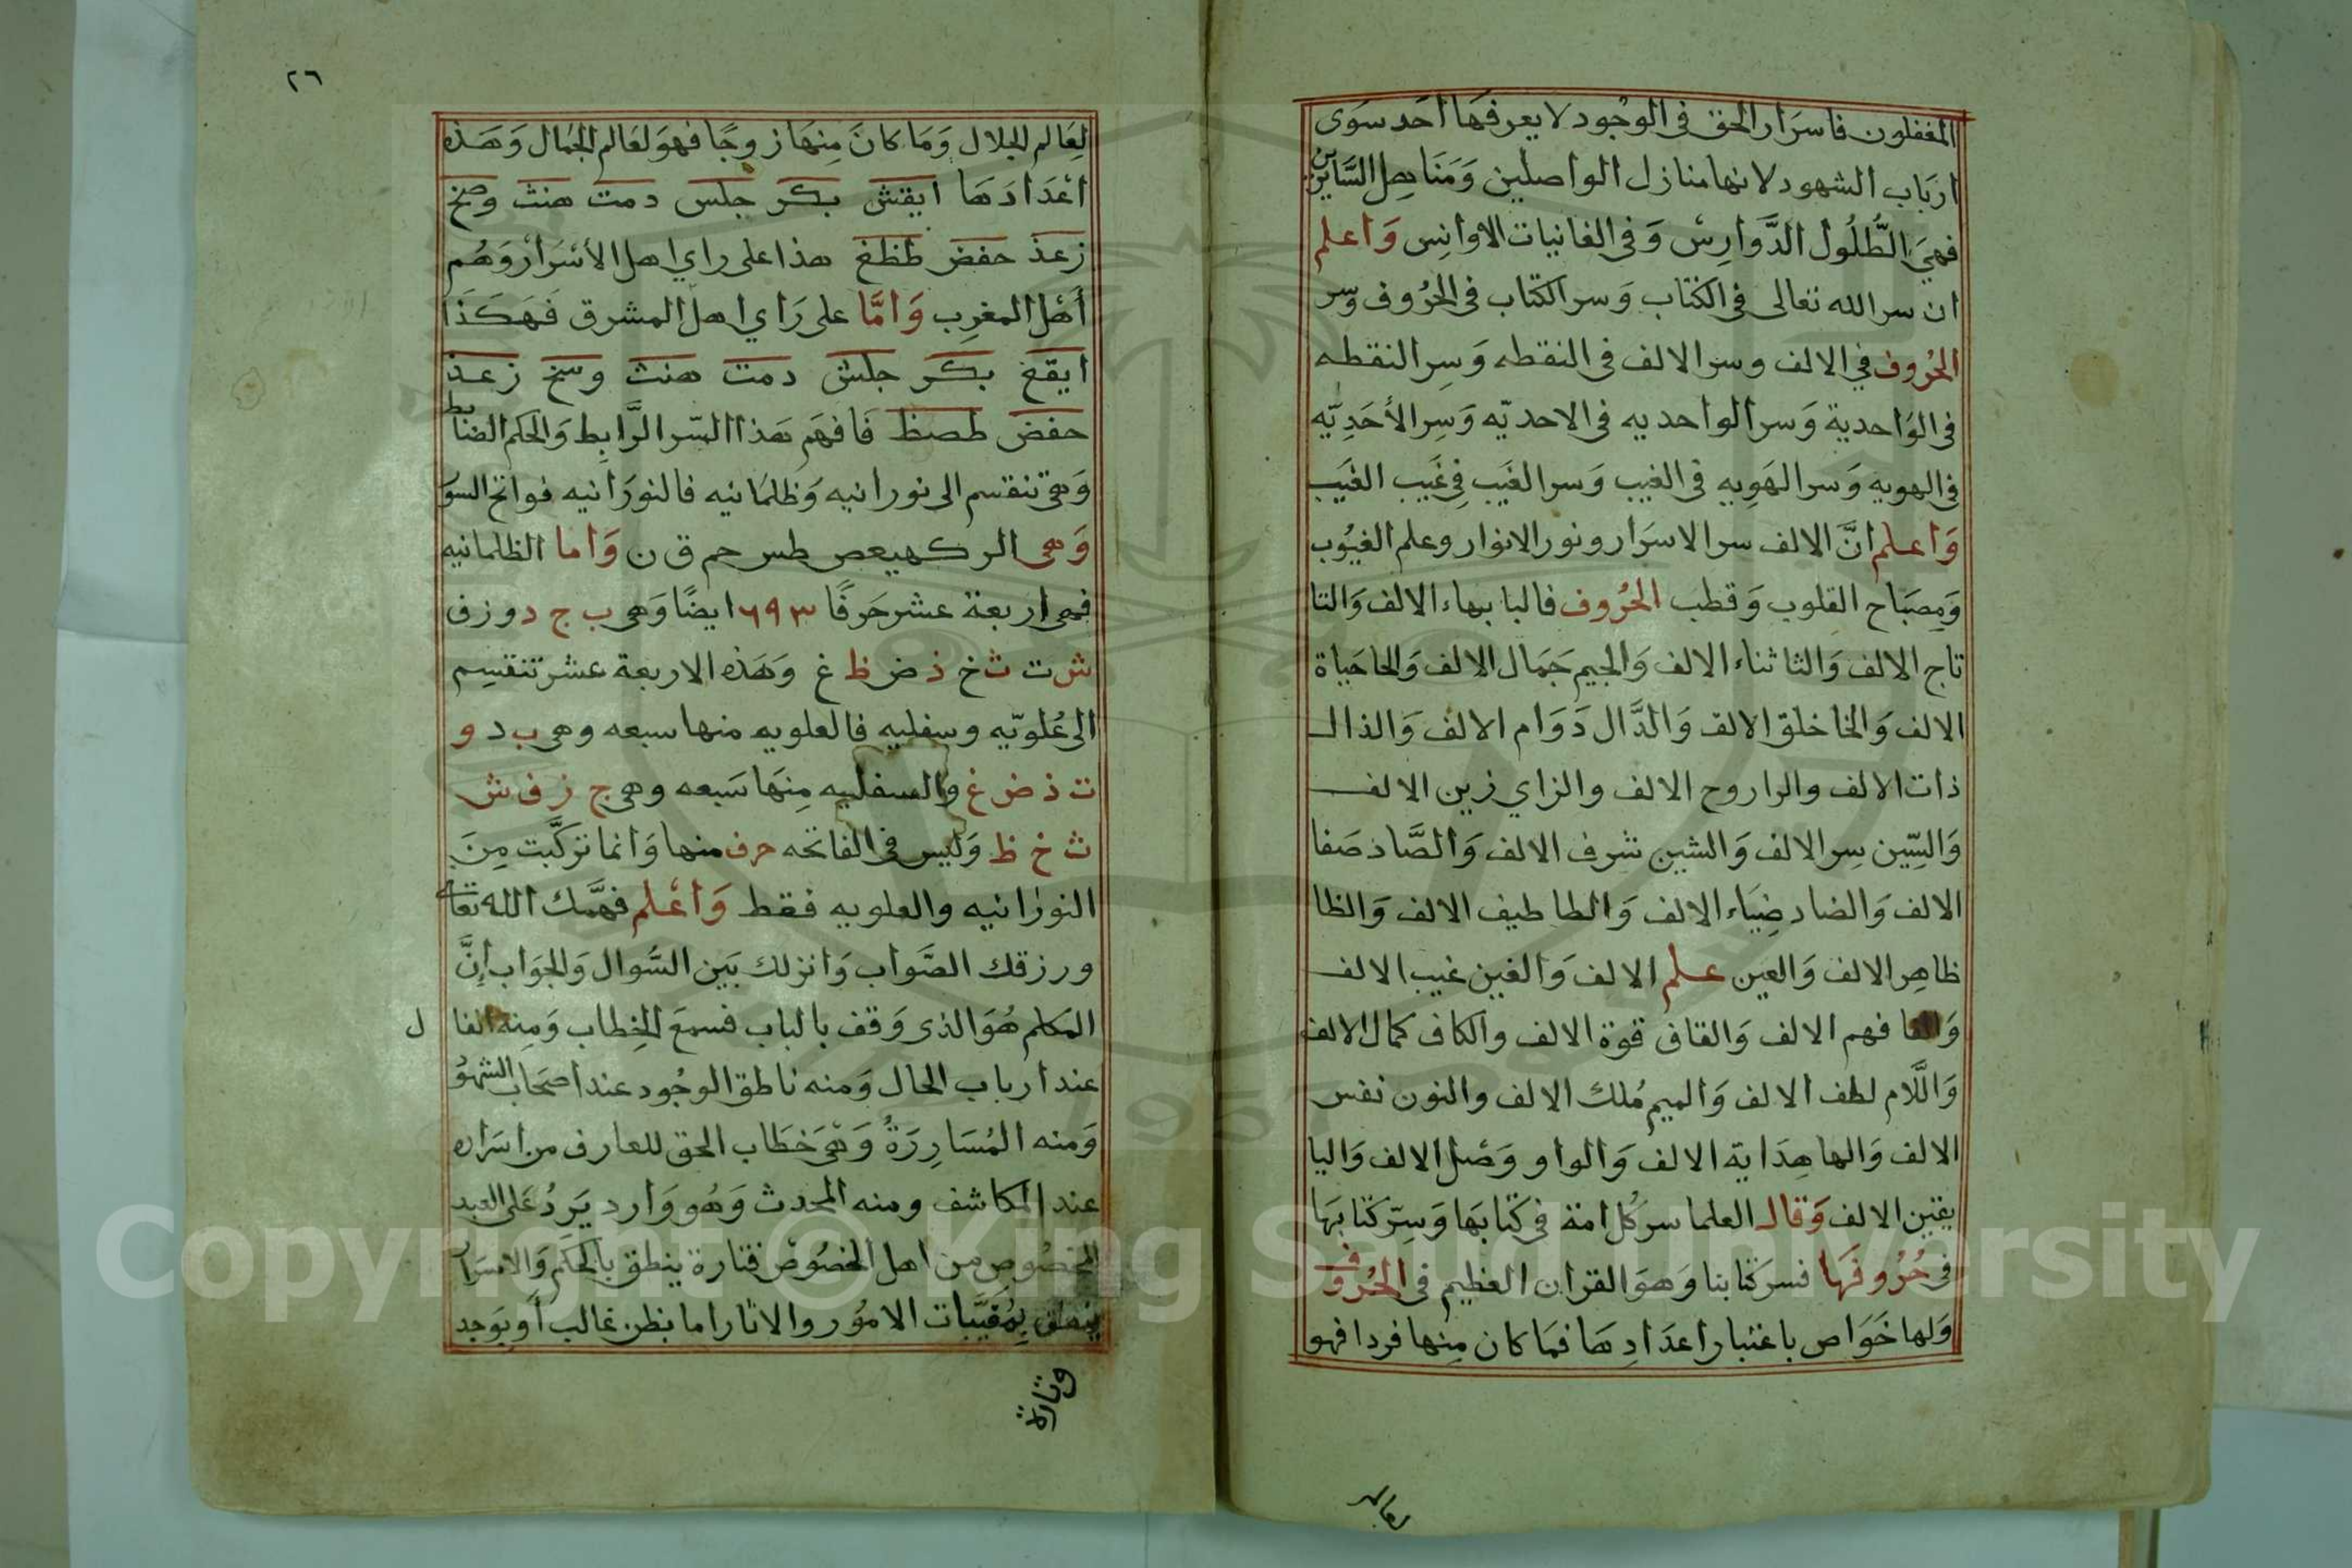 المغفلون فاسرار الحق في الوجود لا يعرفها احد سوى
ارباب الشهود لانها منازل الواصلين ومناهل السايرين
فهي الطُّلُول الدَّوَارِسْ وَفي الغانيات الاوانِس وَاعلم
ان سر الله تعالى في الكتاب وَسر الكتاب في الحُرُوف وسر
الحُرُوف في الالف وسر الالف في النقطه وَسِر النقطه
في الوَاحدية وَسر الواحديه في الاحديّه وَسِر الأحَدِيّه
في الهويه وَسر الهَوِيه في الغيب وَسر الغَيب فِي غَيب الغَيب
وَاعلم انَّ الالف سر الاسرَار ونور الانوار وعلم الغيُوب
وَمِصبَاح القلوب وَقطب الحُرُوف فالبا بهاء الالف وَالتا
تاج الالف وَالثا ثناء الالف وَالجيم جَمَال الالف وَالحا حَياة
الالف وَالخا خلق الالف وَالدَّال دَوَام الالف وَالذال
ذات الالف والرا روح الالف والزاي زين الالف
وَالسِّين سِر الالف وَالشين شرف الالف وَالصَّاد صَفا
الالف وَالضاد ضِيَاء الالف وَالطا طيف الالف وَالظا
ظاهِر الالف وَالعين علم الالف وَالغين غيب الالف
وَالفا فهم الالف وَالقاف قوة الالف والكاف كمال الالف
وَاللَّام لطف الالف وَالميم مُلك الالف والنون نفس
الالف وَالها هِدَاية الالف وَالواو وَصْل الالف وَاليا
يقين الالف وَقال العلما سر كُل امة في كتابها وَسِرّ كتابهَا
في حُرُوفهَا فسر كتابنا وَهوَ القران العظيم في الحُروف
وَلها خَوَاص باعتبار اعدَادِهَا فمَا كان مِنها فردا فهو
لعالم
٢٦
لِعَالم الجلال وَمَا كانَ مِنهَا زوجًا فهوَ لعَالم الجمَال وَهَذه
اعْدَادهَا ايقش بكر جلس دمت هنث وصخ
زعذ حفض طظغ هذا على راي اهل الأسْرَار وَهُم
أهْل المغرِب وَامَّا على رَاي اهل المشرق فَهَكَذَا
ايقغ بكر جلش دمت هنث وسخ زعذ
حفض طصظ فَافهَم هَذا السّر الرَّابِط وَالحكم الضابط
وَهي تنقسم الى نورانيه وَظلمَانيه فالنورَانيه فواتح السوَر
وَهي الر كهيعص طس حم ق ن وَاما الظلمانيه
فهي اربعة عشر حَرفًا ٦٩٣ ايضًا وَهي ب ج د و ز ف
ش ت ث خ ذ ض ظ غ وَهَذه الاربعة عشر تنقسِم
الى عُلويّه وسفليه فالعلويه منها سبعه وهي ب د و
ت ذ ض غ والسفليه مِنهَا سَبعه وهي ج ز ف ش
ث خ ظ وَليس في الفاتحه حرف منها وَانما تركَّبت مِنَ
النورانيه والعلويه فقط وَاعْلم فهَّمك الله تعالى
ورزقك الصَّواب وَانزلك بَين السُّوال وَالجوَاب إنَّ
المكلم هُوَ الذي وَقف بالباب فسمعَ الخِطاب وَمِنه الفا ل
عند ارباب الحال وَمنه ناطق الوجُود عند اصحَاب الشهُو
وَمنه المُسَارِرَةُ وَهيَ خطَاب الحق للعارف من اسَراره
عند المكاشف ومنه المحدث وَهُو وَارد يَرِدُ عَلى العبد
المخصُوص من اهل الخصُوص فتارة ينطق بالحكَم وَالاسرَار
ينطق بِمُغيَّبات الامُور والاثار اما بظن غالب أو بوَجد
وتارة